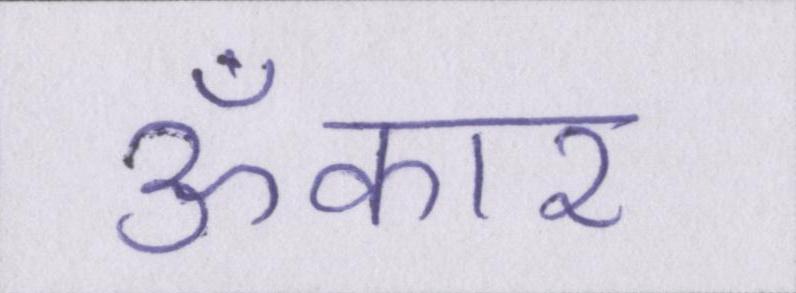 ॐकार